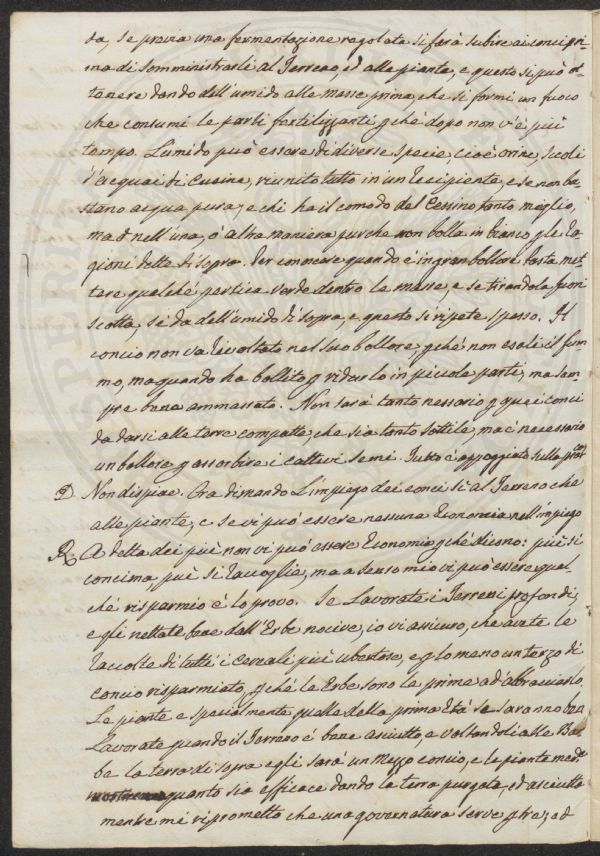 da, se prova una fermentazione regolata si farà subire ai conci pri-
ma di somministrarli al Terreno, ed alle piante, e questo si può ot-
tenere dando dell'umido alle Masse prima, che si formi un fuoco
che consumi le parti fertilizzanti pché dopo non v'è più
tempo. L'umido può essere di diverse specie, cioè orine, scoli
d'acquai di Cucina, riunito tutto in un recipiente, e se non ba-
stano acqua pura; e chi ha il comodo del Cessino tanto meglio,
ma o nell'una, o altra maniera purche non bolla in bianco p le ra-
gioni dette di sopra. Per conoscere quando è in gran bollore basta met-
tere qualche pertica verde dentro la massa, e se tirandola fuori
scotta, si dà dell'umido di sopra, e questo si ripete spesso. Il
concio non va rivoltato nel suo bollore, pché non esali il fum-
mo, ma quando ha bollito p ridurlo in piccole parti, ma sem-
pre bene ammassato. Non sarà tanto nessario p quei conci
da darsi alle terre compatte, che sia tanto sottile, ma è necessario
un bollore p assorbire i cattivi semi. Tutto è appoggiato sulla
D. Non dispiace. Ora dimando L'impiego dei conci sì al Terreno che
alle piante, e se vi può essere nessuna Economia nell'impiego
R. A detta dei più non vi può essere Economia pché dicono: più si
concima, più si raccoglie, ma a senso mio vi può essere qual-
ché risparmio è lo provo. Se Lavorate i Terreni profondi,
e gli nettate bene dall'Erbe nocive, io vi assicuro, che avete le
raccolte di tutti i cereali più ubertose, e p lo meno un terzo di
concio risparmiato, pché le Erbe sono le prime ad abbracciarlo.
Le piante e specialmente quelle della prima Età se saranno ben
Lavorate quando il Terreno è bene asciutto, e voltandoli alle Bar-
be la terra di sopra egli sarà un Mezzo concio, e le piante
quanto sia efficace dando la terra purgata, ed asciutta
mentre mi riprometto che una governatura serve p tre, ed